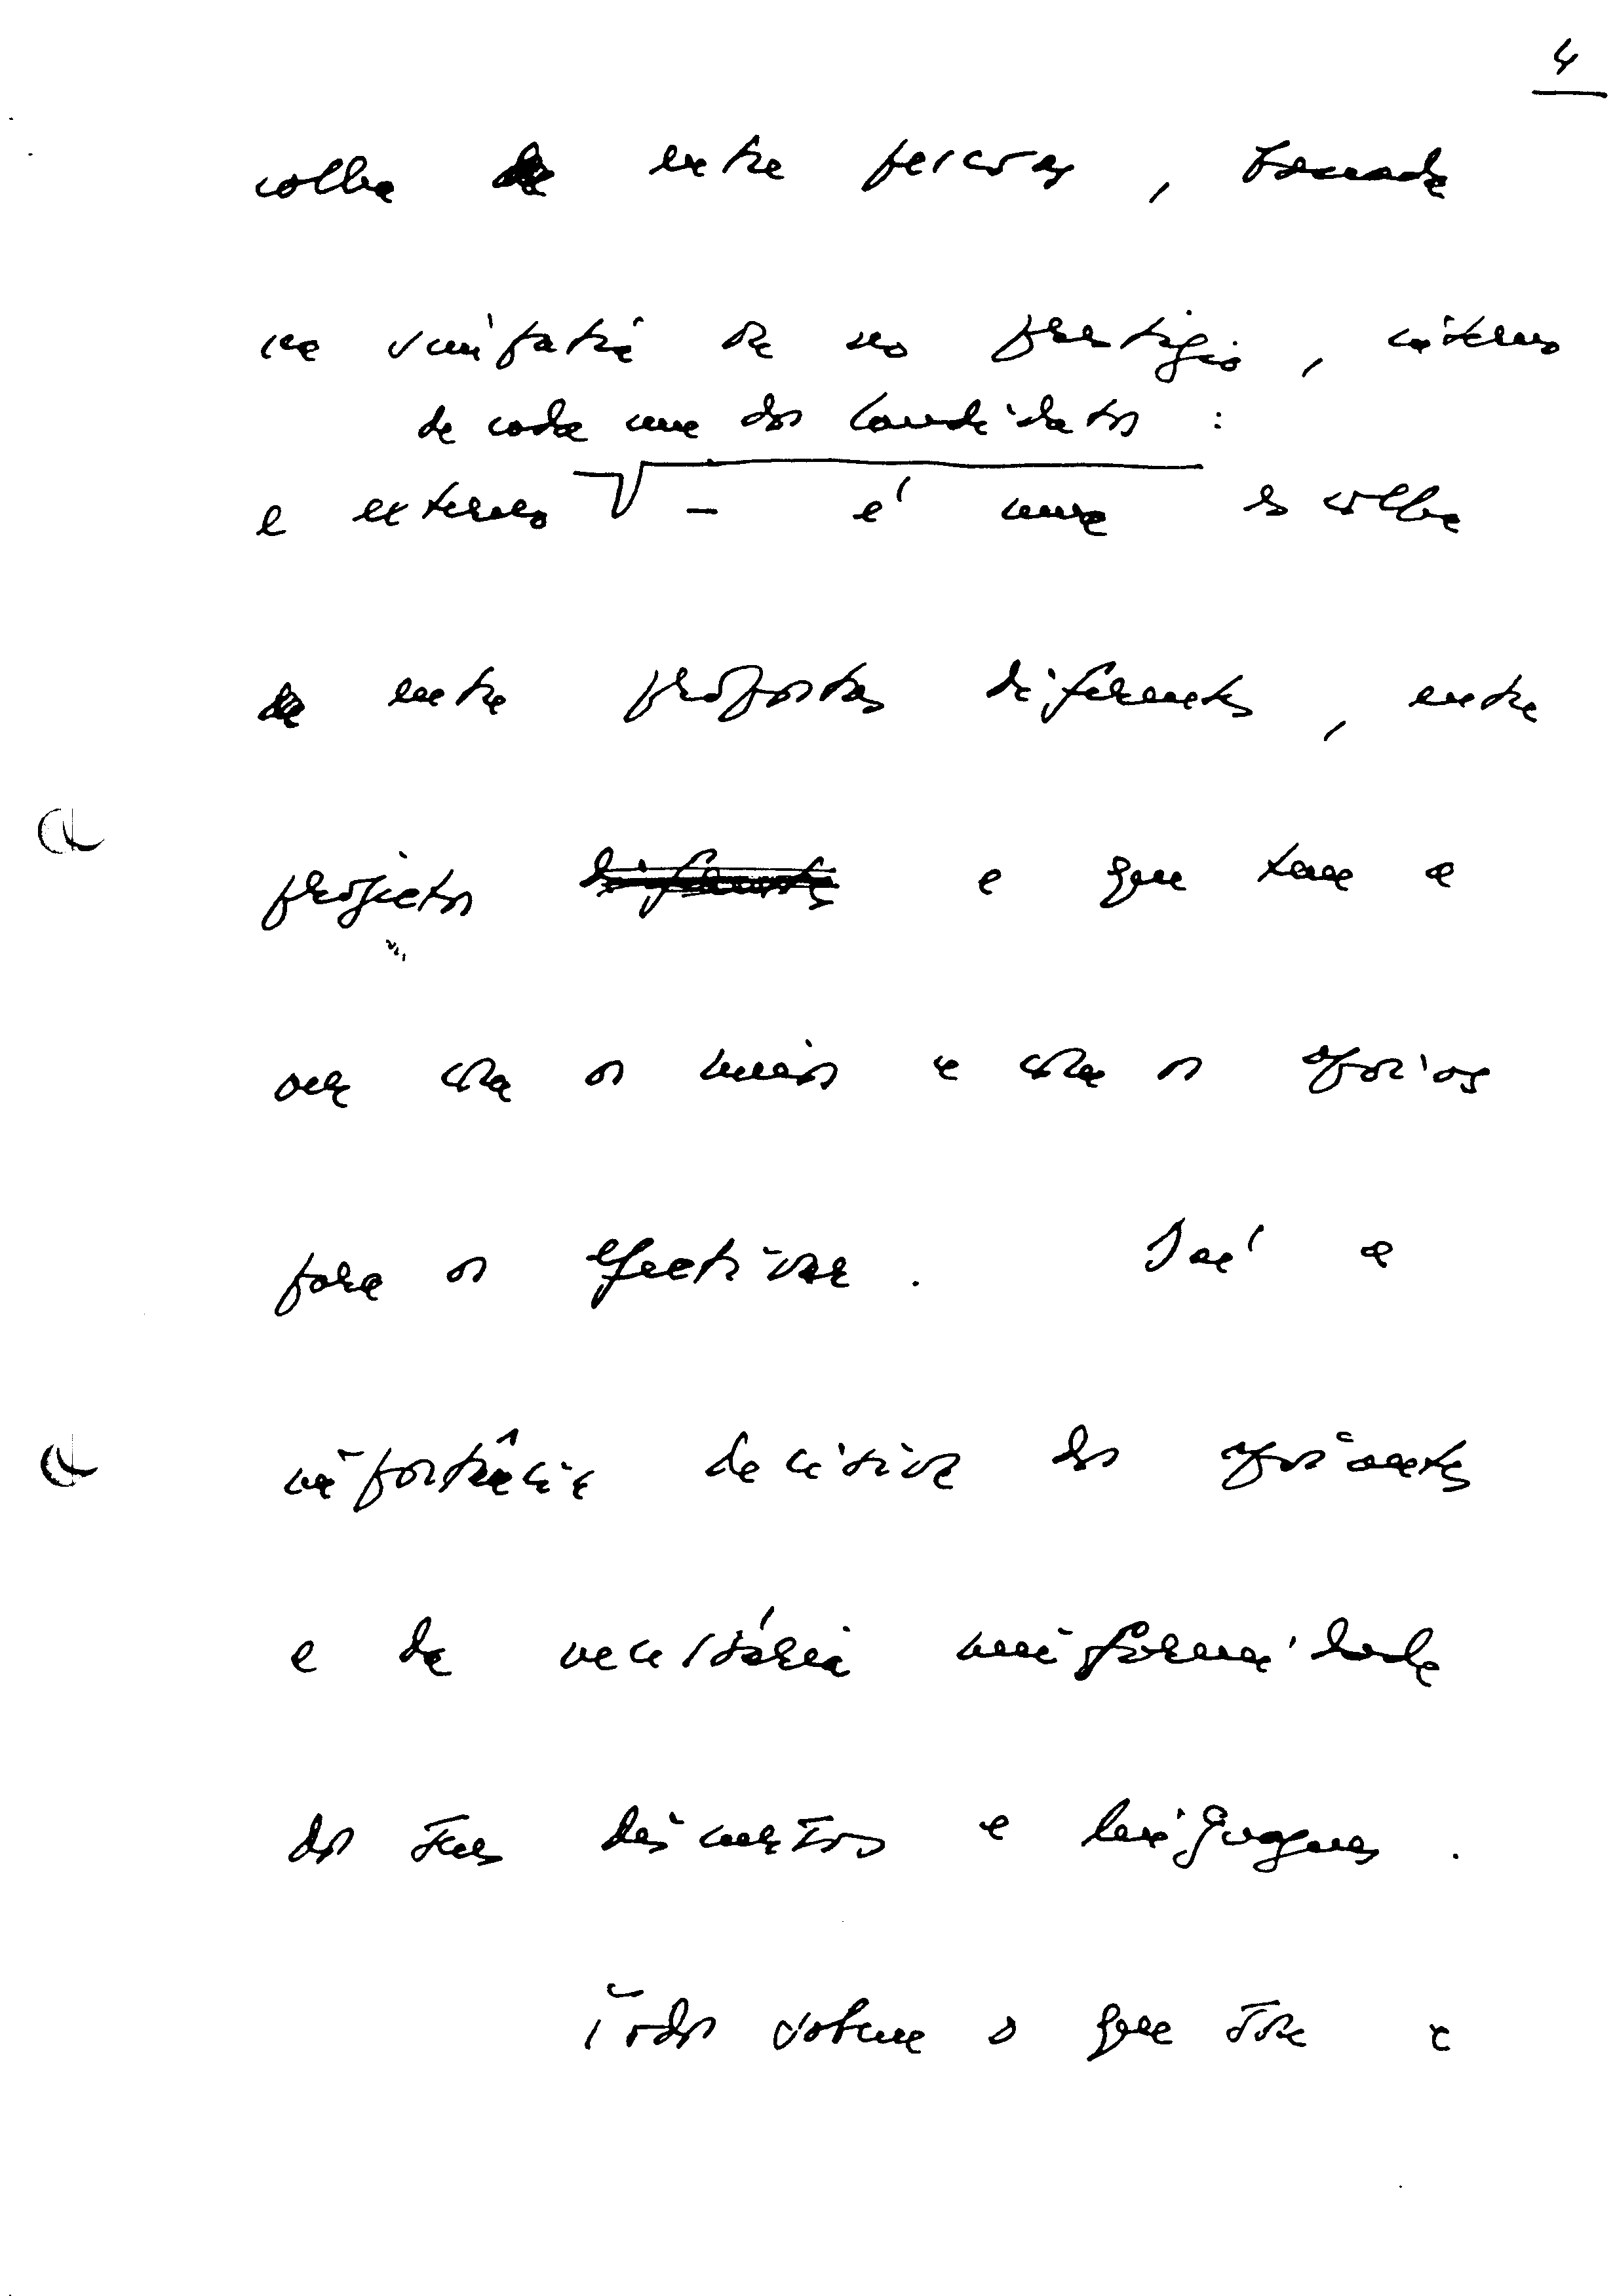 4
colha entre pessoas, baseada
na simpatia ou no prestígio, interno
de cada um dos candidatos:
e externo - é uma escolha
entre propostas diferentes, entre
projectos e que tem a
ver com os meios e com os apoios
para os efectivar. Daí a
importância decisiva dos apoiantes
e da necessária uniformidade
dos seus discursos e linguagens.
Todos sabem o que foi a